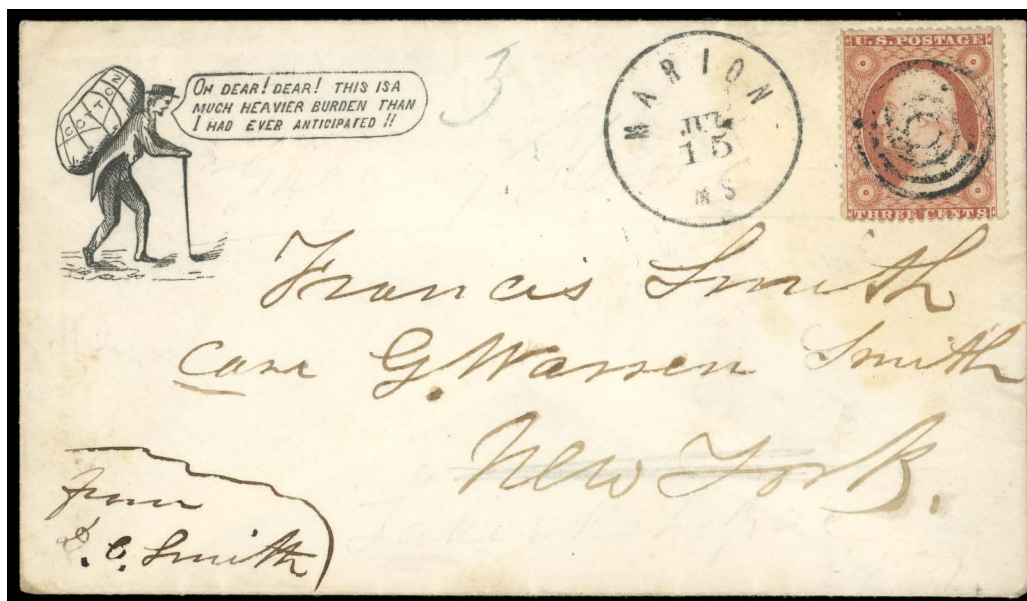 COTTON
OH DEAR! DEAR! THIS IS A
MUCH HEAVIER BURDEN THAN
I HAD EVER ANTICIPATED!!
3
MARION
JUL
15
MS
U.S. POSTAGE
THREE CENTS
Francis Smith
Care G. Warren Smith
New York.
from
D. C. Smith